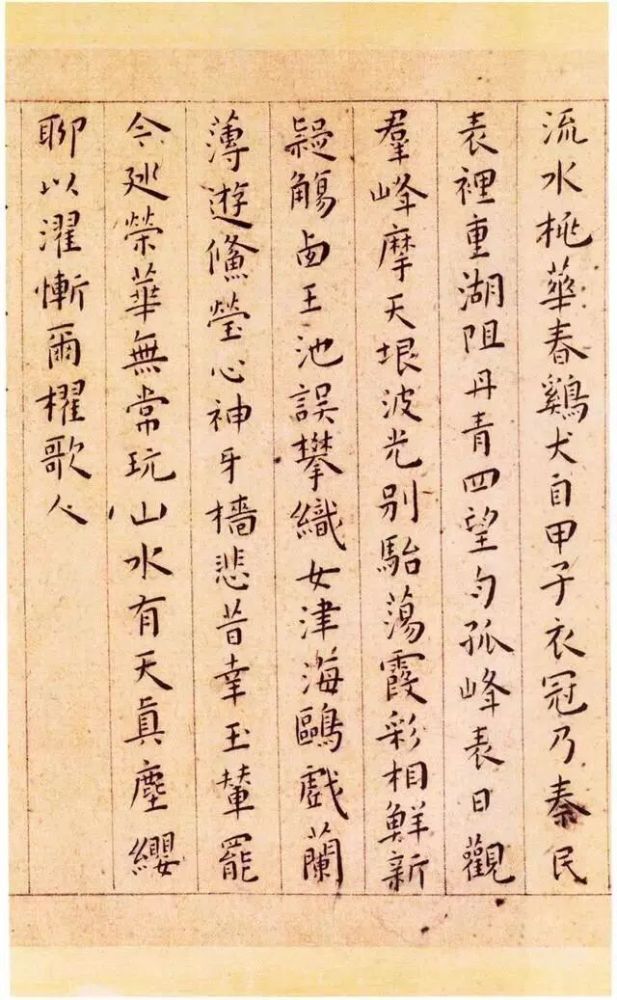 流水桃華春鷄犬自甲子衣冠乃秦民
表裡重湖阻丹青四望勻孤峰表日觀
羣峰摩天垠波光別駘蕩霞彩相鮮新
疑觴西王池誤攀織女津海鷗戲蘭
薄遊鯈瑩心神牙檣悲昔幸玉輦罷
今廵榮華無常玩山水有天真塵纓
聊以濯慚爾櫂歌人